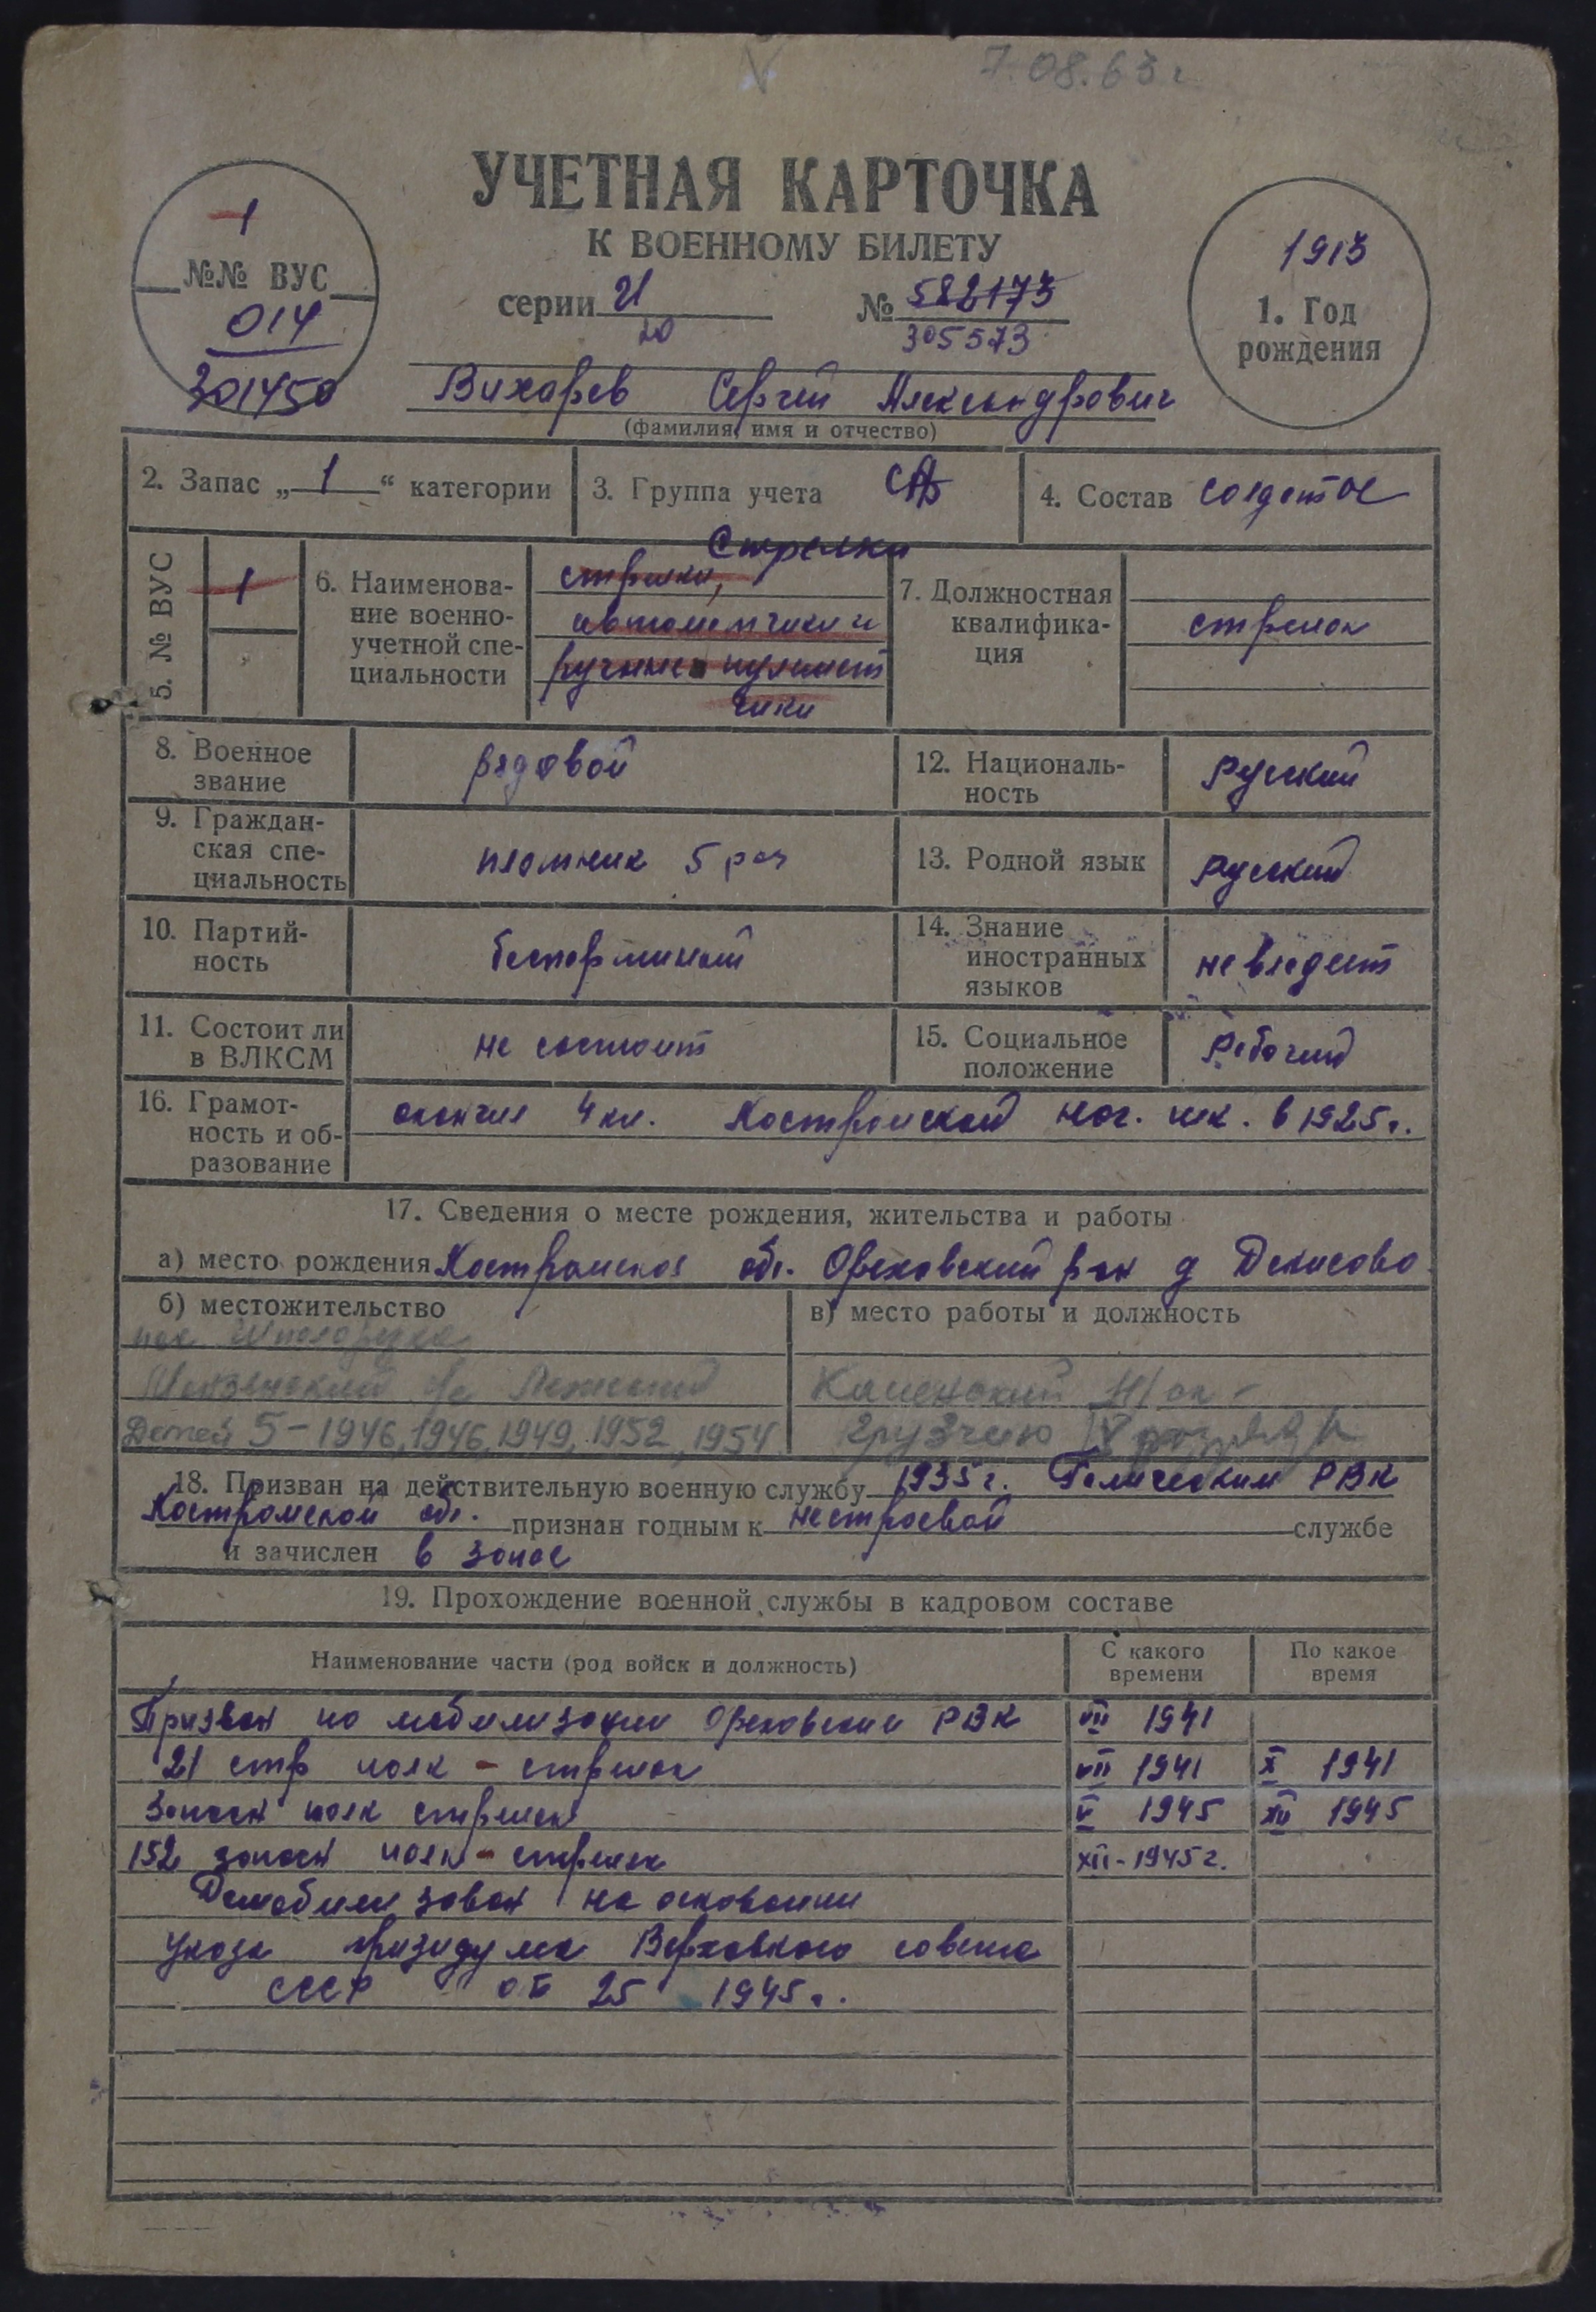 7.08.63 г
УЧЕТНАЯ КАРТОЧКА
К ВОЕННОМУ БИЛЕТУ
1
№№ ВУС
014
201450
серии И № 582173
20 305573
1913
1. Год
рождения
Вихарев Сергей Александрович
(фамилия, имя и отчество)
2. Запас „1“ категории
3. Группа учета СА
4. Состав солдатск
5. № ВУС
1
6. Наименова-
ние военно-
учетной спе-
циальности
Стрелки
стрелки,
автоматчики и
ручные пулемет
чики
7. Должностная
квалифика-
ция
стрелок
8. Военное
звание
рядовой
12. Националь-
ность
Русский
9. Граждан-
ская спе-
циальность
плотник 5 раз
13. Родной язык
Русский
10. Партий-
ность
беспартийный
14. Знание
иностранных
языков
не владеет
11. Состоит ли
в ВЛКСМ
не состоит
15. Социальное
положение
Рабочий
16. Грамот-
ность и об-
разование
окончил 4 кл. Костромской нач. шк. в 1925 г.
17. Сведения о месте рождения, жительства и работы
а) место рождения Костромская обл. Ореховский р-он д Денисово
б) местожительство
пос
Детей 5 - 1946, 1946, 1949, 1952, 1954
в) место работы и должность
Каменский
грузчик IV разряда
18. Призван на действительную военную службу 1935 г. Галическим РВК
Костромской обл. признан годным к нестроевой службе
и зачислен в запас
19. Прохождение военной службы в кадровом составе
Наименование части (род войск и должность)
С какого
времени
По какое
время
Призван по мобилизации Ореховским РВК VII 1941
21 стр полк - стрелок VII 1941 X 1941
Запасн полк стрелок V 1945 XII 1945
152 запасн полк - стрелок XII - 1945 г.
Демобилизован на основании
Указа призидума Верховного совета
СССР от 25 1945 г.